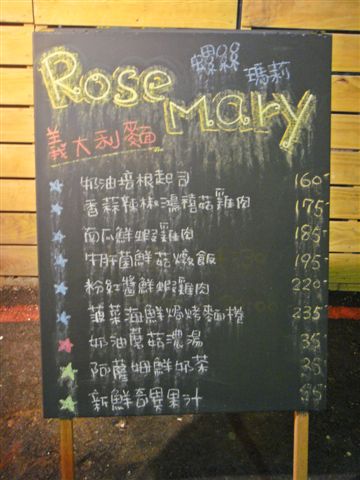 Rose
螺絲
瑪莉
mary
義大利麵
奶油培根起司 160
香蒜辣椒濃磨菇雞肉 175
南瓜鮮蝦雞肉 185
牛肝菌鮮菇燉飯 195
粉紅醬鮮蝦雞肉 220
菠菜海鮮焗烤麵捲 235
奶油蘑菇濃湯 35
阿薩姆鮮奶茶 35
新鮮奇異果汁